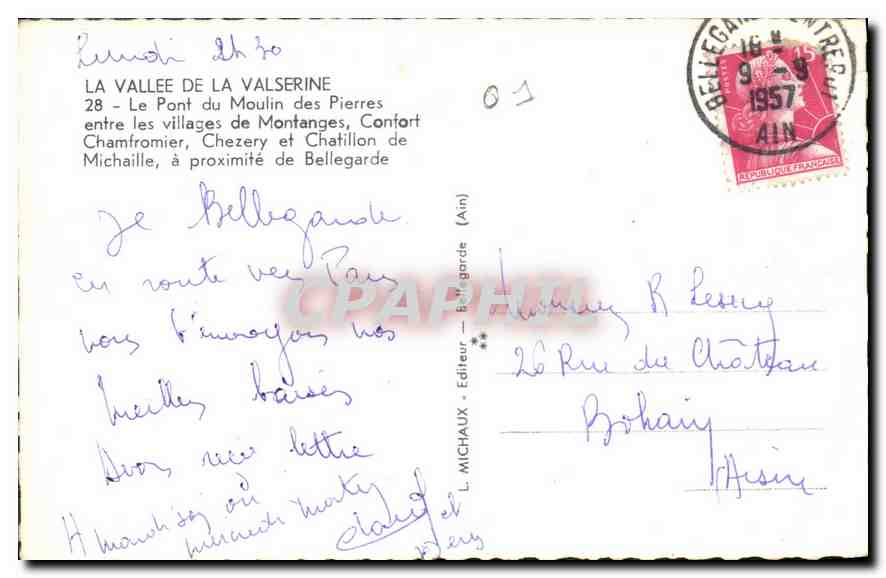 Lundi 2h30
LA VALLEE DE LA VALSERINE
28 - Le Pont du Moulin des Pierres
entre les villages de Montanges, Confort
Chamfromier, Chezery et Chatillon de
Michaille, à proximité de Bellegarde
Bellegarde
en route vers Paris
vous t'envoyons nos
Meilleurs baisers
Avons reçu lettre
A mardi soir ou
mercredi matin
et
L. MICHAUX - Editeur - Bellegarde (Ain)
BELLEGARDE ENTREPOT
18 H
9 - 9
1957
AIN
POSTES
15
REPUBLIQUE FRANCAISE
Monsieur R
26 Rue du Château
Bohain
Aisne
CPAPHIL